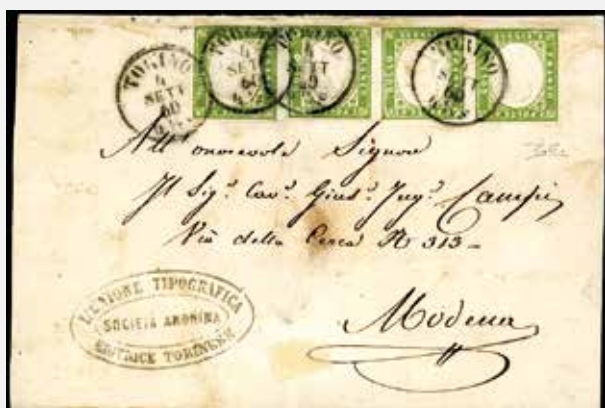 TORINO
4
SETT
60
TORINO
4
SETT
60
TORINO
4
SETT
60
TORINO
4
SETT
60
All' onorevole Signore
Il Sig.r Cav.r Gius.e Ing.e Campi
Via della Cerca N 313 =
Modena
UNIONE TIPOGRAFICA
SOCIETÀ ANONIMA
EDITRICE TORINESE